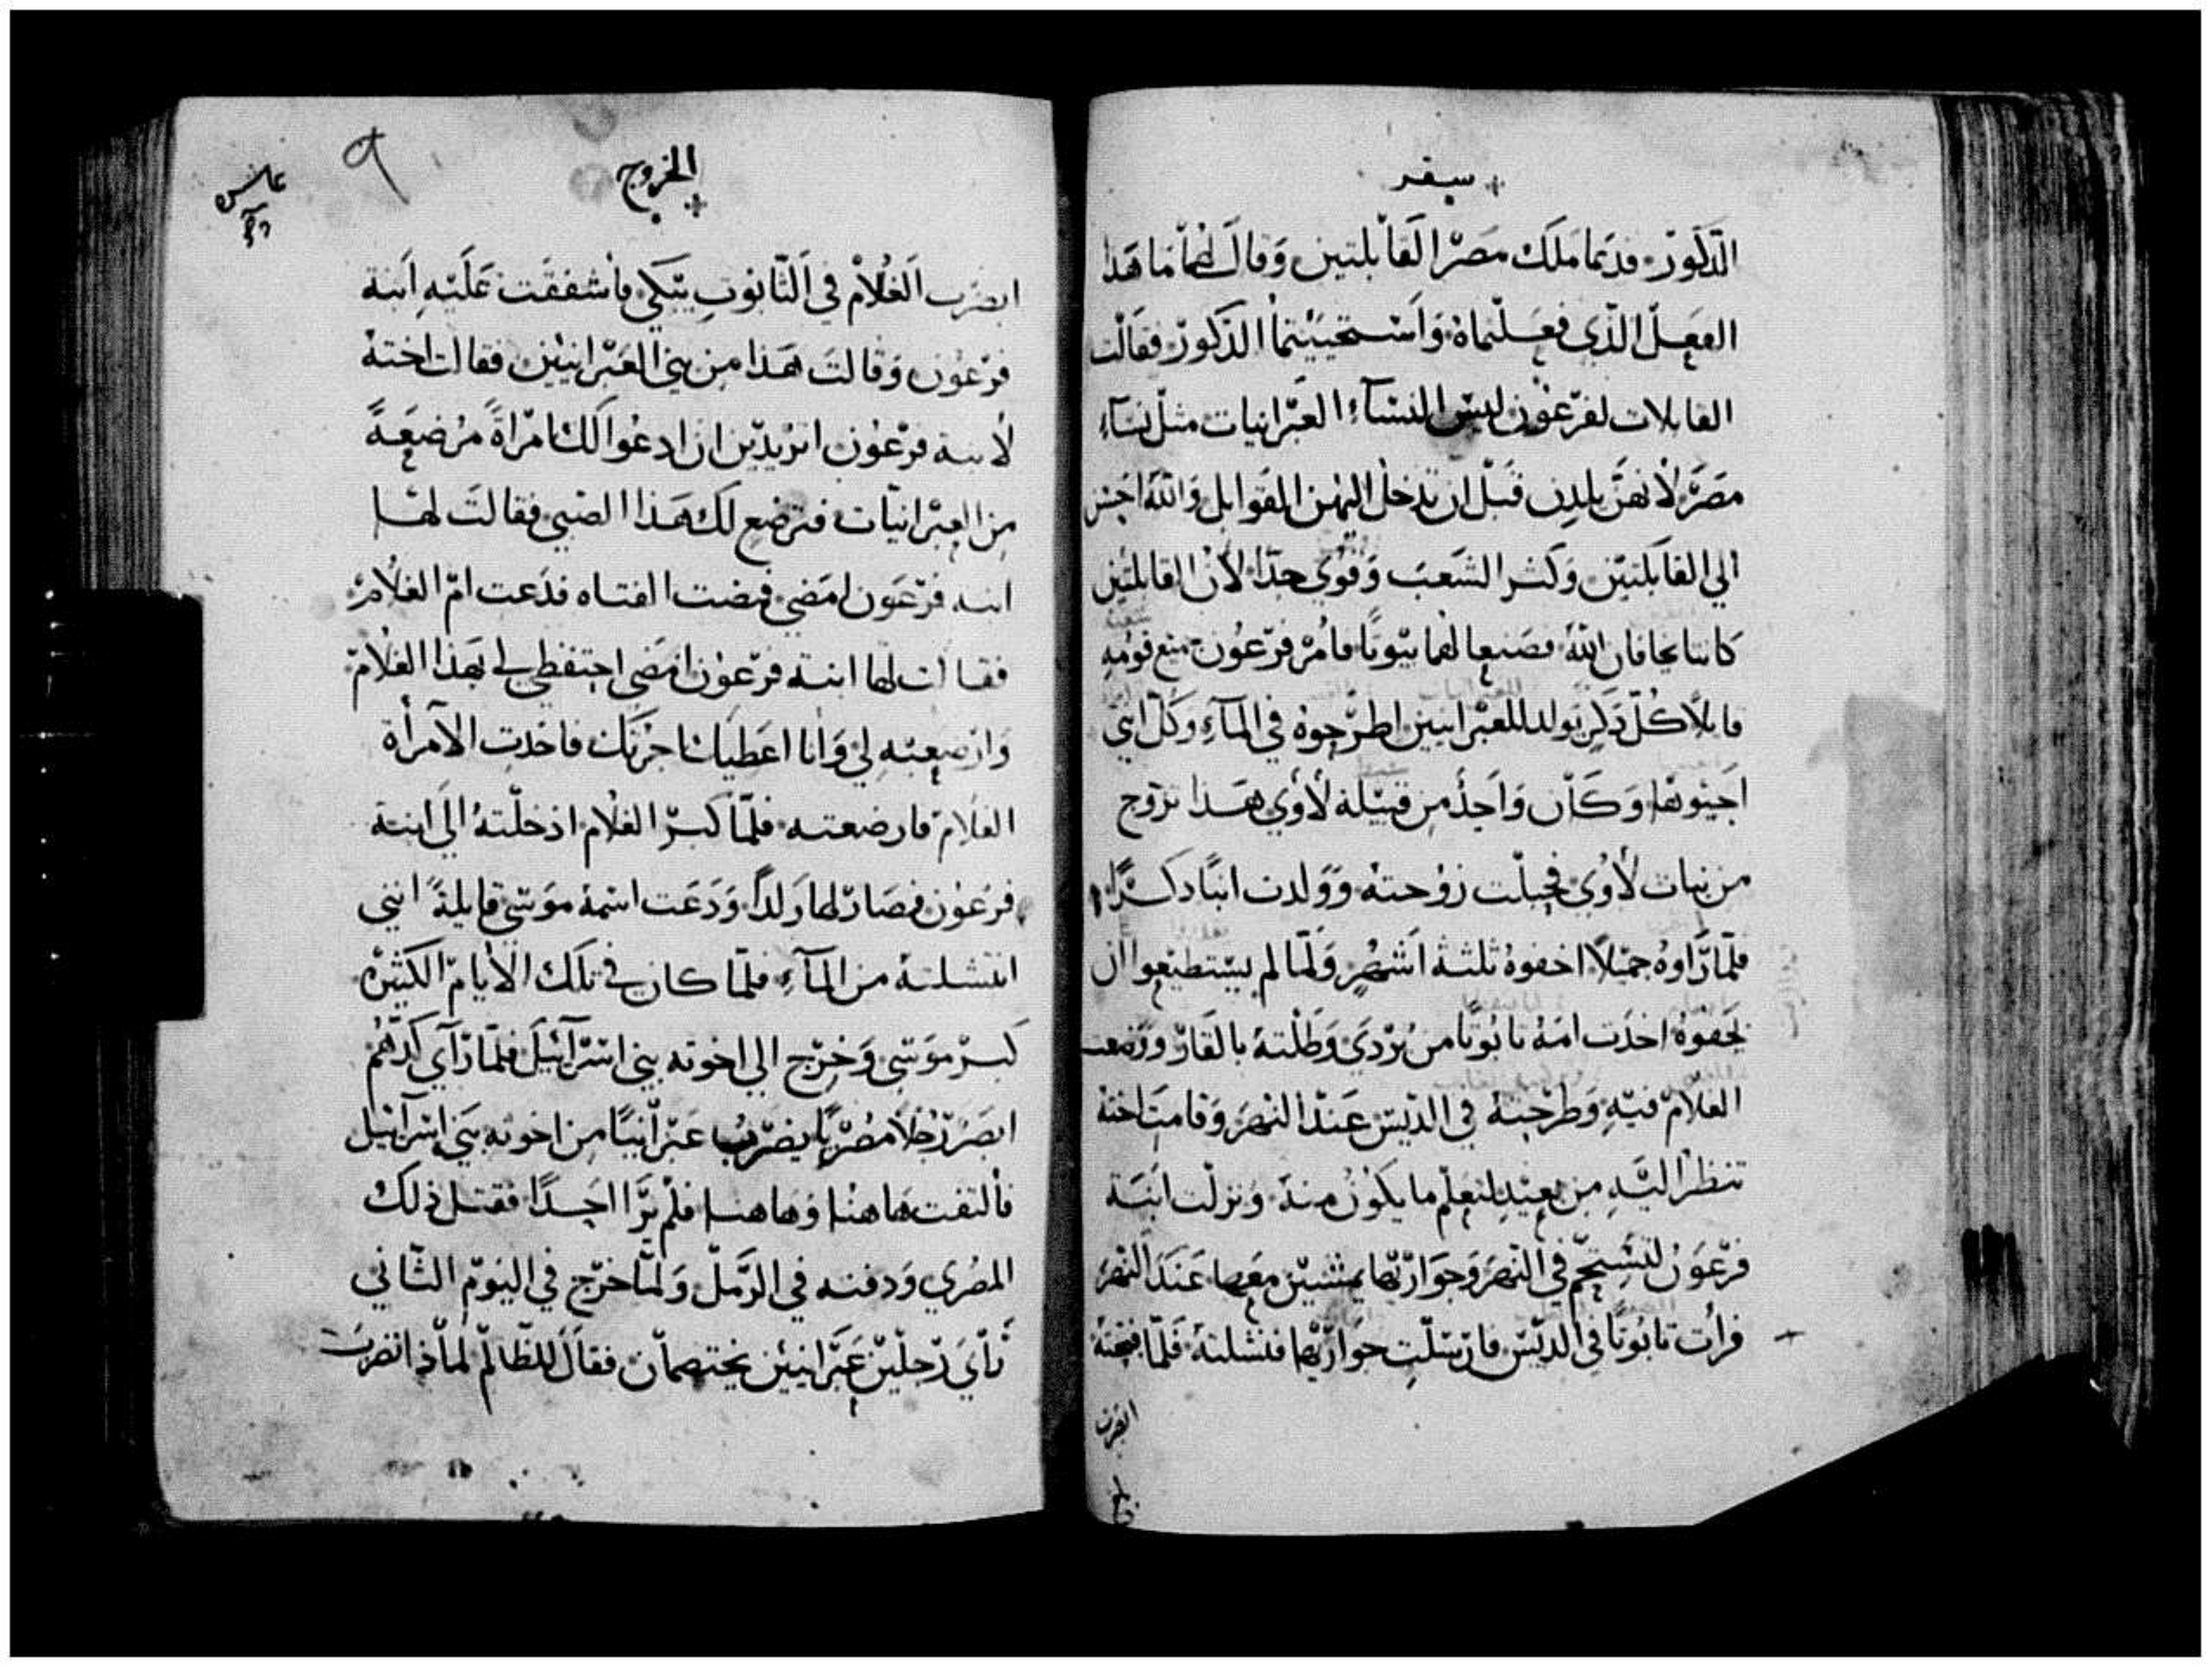 سفر
الذكور. فدعا ملك مصر القابلتين وقال لهما ما هذا
الفعل الذي فعلتماه واستحييتما الذكور فقالت
القابلات لفرعون ليس النساء العبرانيات مثل نساء
مصر لانهن يلدن قبل ان تدخل اليهن القوابل والله احسن
الي القابلتين وكثر الشعب وقوي جدا لان القابلتين
كانتا يخافان الله فصنعا لهما بيوتا فامر فرعون قومه
قايلا كل ذكر يولد للعبرانيين اطرحوه في الماء وكل انثي
احيوها وكان واحد من قبيلة لاوي هذا تزوج
من بنات لاوي فحبلت زوجته وولدت ابنا ذكرا
فلما راوه جميلا اخفوه ثلثة اشهر ولما لم يستطيعوا ان
يخفوه اخذت امه تابوتا من بردي وطلته بالقار ووضعت
الغلام فيه وطرحته في الديس عند النهر وقامت اخته
تنظر اليه من بعيد لتعلم ما يكون منه ونزلت ابنة
فرعون لتستحم في النهر وجوارتها يمشين معها عند النهر
فرات تابوتا في الديس فارسلت جوارتها فنشلته فلما فتحته
ابصرت
الخروج
٩
ابصرت الغلام في التابوت يبكي فاشفقت عليه ابنة
فرعون وقالت هذا من بني العبرانيين فقالت اخته
لابنة فرعون اتريدين ان ادعوا لك امراة مرضعة
من العبرانيات فترضع لك هذا الصبي فقالت لها
ابنة فرعون امضي فمضت الفتاه فدعت ام الغلام
فقالت لها ابنة فرعون امضي احتفظي لي بهذا الغلام
وارضعيه لي وانا اعطيك اجرتك فاخذت الامرأة
الغلام فارضعته فلما كبر الغلام ادخلته الي ابنة
فرعون فصار لها ولدا ودعت اسمه موسي قايلة انني
انتشلته من الماء فلما كان في تلك الايام الكثيره
كبر موسي وخرج الي اخوته بني اسرآئيل فلما رآي كدهم
ابصر رجلا مصريا يضرب عبرانيا من اخوته بني اسرآئيل
فالتفت هاهنا وهاهنا فلم يرا احدا فقتل ذلك
المصري ودفنه في الرمل ولما خرج في اليوم الثاني
رآي رجلين عبرانيين يختصمان فقال للظالم لماذا تضرب